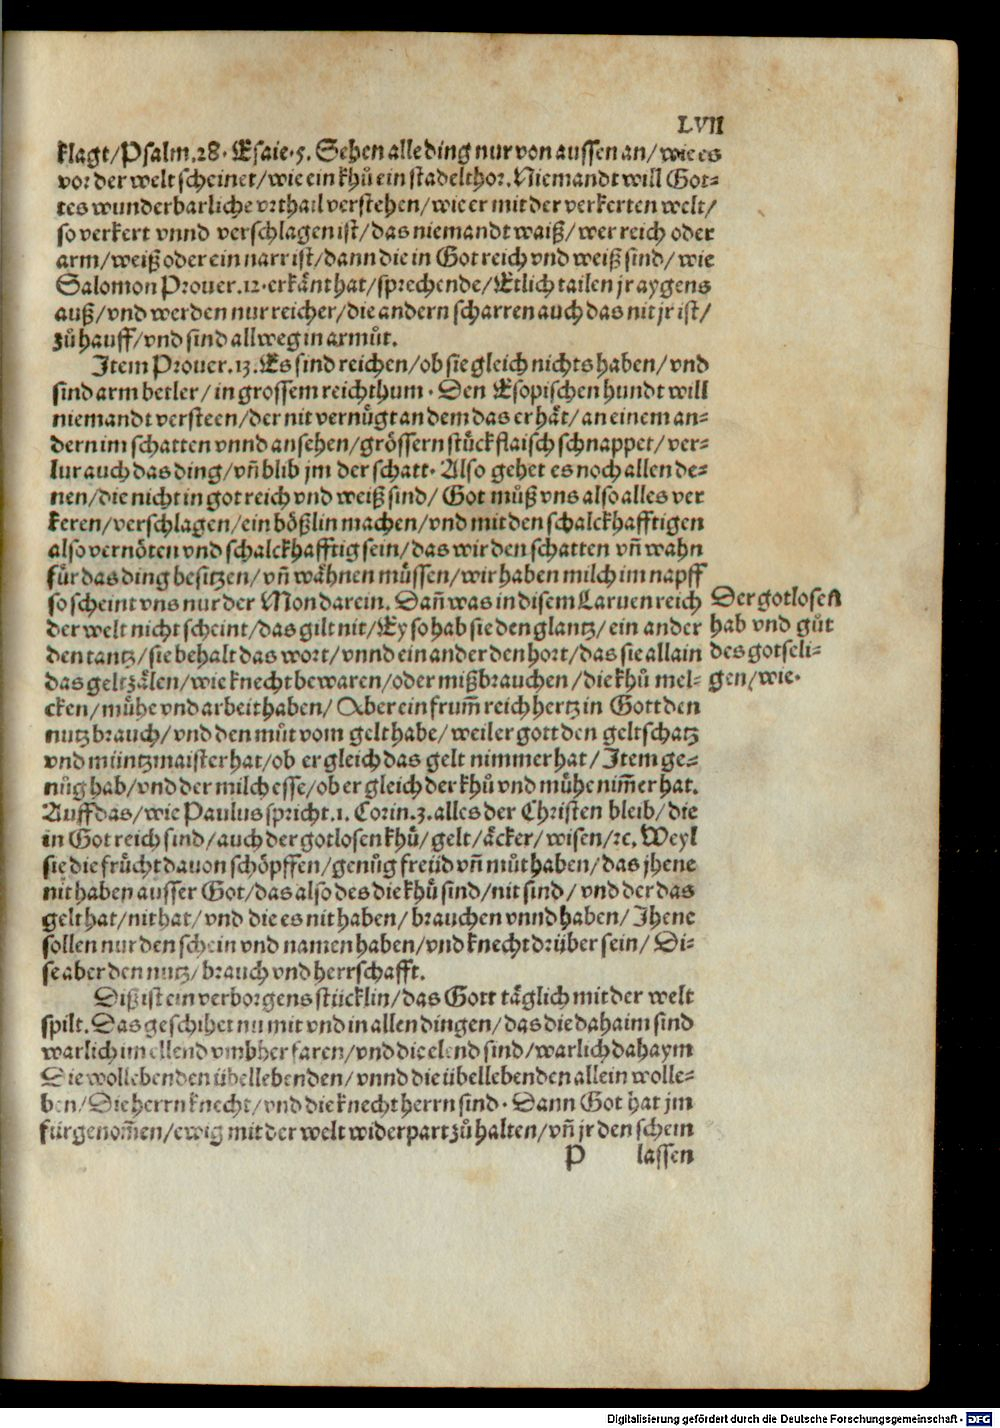 LVII
klagt/Psalm.28. Esaie.5. Sehen alle ding nur von aussen an/wie es
vor der welt scheinet/wie ein khů ein stadelthor. Niemandt will Got-
tes wunderbarliche vrthail verstehen/wie er mit der verkerten welt/
so verkert vnnd verschlagen ist/das niemandt waiß/wer reich oder
arm/weiß oder ein narr ist/dann die in Got reich vnd weiß sind/wie
Salomon Prouer.12. erkänt hat/sprechende/Etlich tailen jr aygens
auß/vnd werden nur reicher/die andern scharren auch das nit jr ist/
zů hauff/vnd sind allweg in armůt.
Item Prouer.13. Es sind reichen/ob sie gleich nichts haben/vnd
sind arm betler/in grossem reichthum. Den Esopischen hundt will
niemandt versteen/der nit vernůgt an dem das er hät/an einem an-
dern im schatten vnnd ansehen/grössern stůck flaisch schnappet/ver-
lur auch das ding/vñ blib jm der schatt. Also gehet es noch allen de-
nen/die nicht in got reich vnd weiß sind/Got můß vns also alles ver
keren/verschlagen/ein bößlin machen/vnd mit den schalckhafftigen
also vernöten vnd schalckhafftig sein/das wir den schatten vñ wahn
für das ding besitzen/vñ wähnen müssen/wir haben milch im napff
so scheint vns nur der Mon darein. Dañ was in disem Laruen reich
der welt nicht scheint/das gilt nit/Ey so hab sie den glantz/ein ander
den tantz/sie behalt das wort/vnnd ein ander den hort/das sie allain
das gelt zälen/wie knecht bewaren/oder mißbrauchen/die khů mel-
cken/můhe vnd arbeit haben/Aber ein frum̃ reich hertz in Gott den
nutz brauch/vnd den můt vom gelt habe/weil er gott den geltschatz
vnd müntzmaister hat/ob er gleich das gelt nimmer hat/Item ge-
nůg hab/vnd der milch esse/ob er gleich der khů vnd můhe nim̃er hat.
Auff das/wie Paulus spricht.1. Corin.3. alles der Christen bleib/die
in Got reich sind/auch der gotlosen khů/gelt/äcker/wisen/ꝛc. Weyl
sie die frücht dauon schöpffen/genůg freüd vñ můt haben/das jhene
nit haben ausser Got/das also des die khů sind/nit sind/vnd der das
gelt hat/nit hat/vnd die es nit haben/brauchen vnnd haben/Jhene
sollen nur den schein vnd namen haben/vnd knecht drüber sein/Di-
se aber den nutz/brauch vnd herrschafft.
Der gotlosen
hab vnd gůt
des gotseli-
gen/wie.
Diß ist ein verborgens stücklin/das Gott täglich mit der welt
spilt. Das geschihet nu mit vnd in allen dingen/das die dahaim sind
warlich im ellend vmbher faren/vnd die elend sind/warlich dahaym
Die wollebenden übellebenden/vnnd die übellebenden allein wolle-
ben/Die herrn knecht/vnd die knecht herrn sind. Dann Got hat jm
fürgenom̃en/ewig mit der welt widerpart zů halten/vñ jr den schein
P lassen
Digitalisierung gefördert durch die Deutsche Forschungsgemeinschaft - DFG